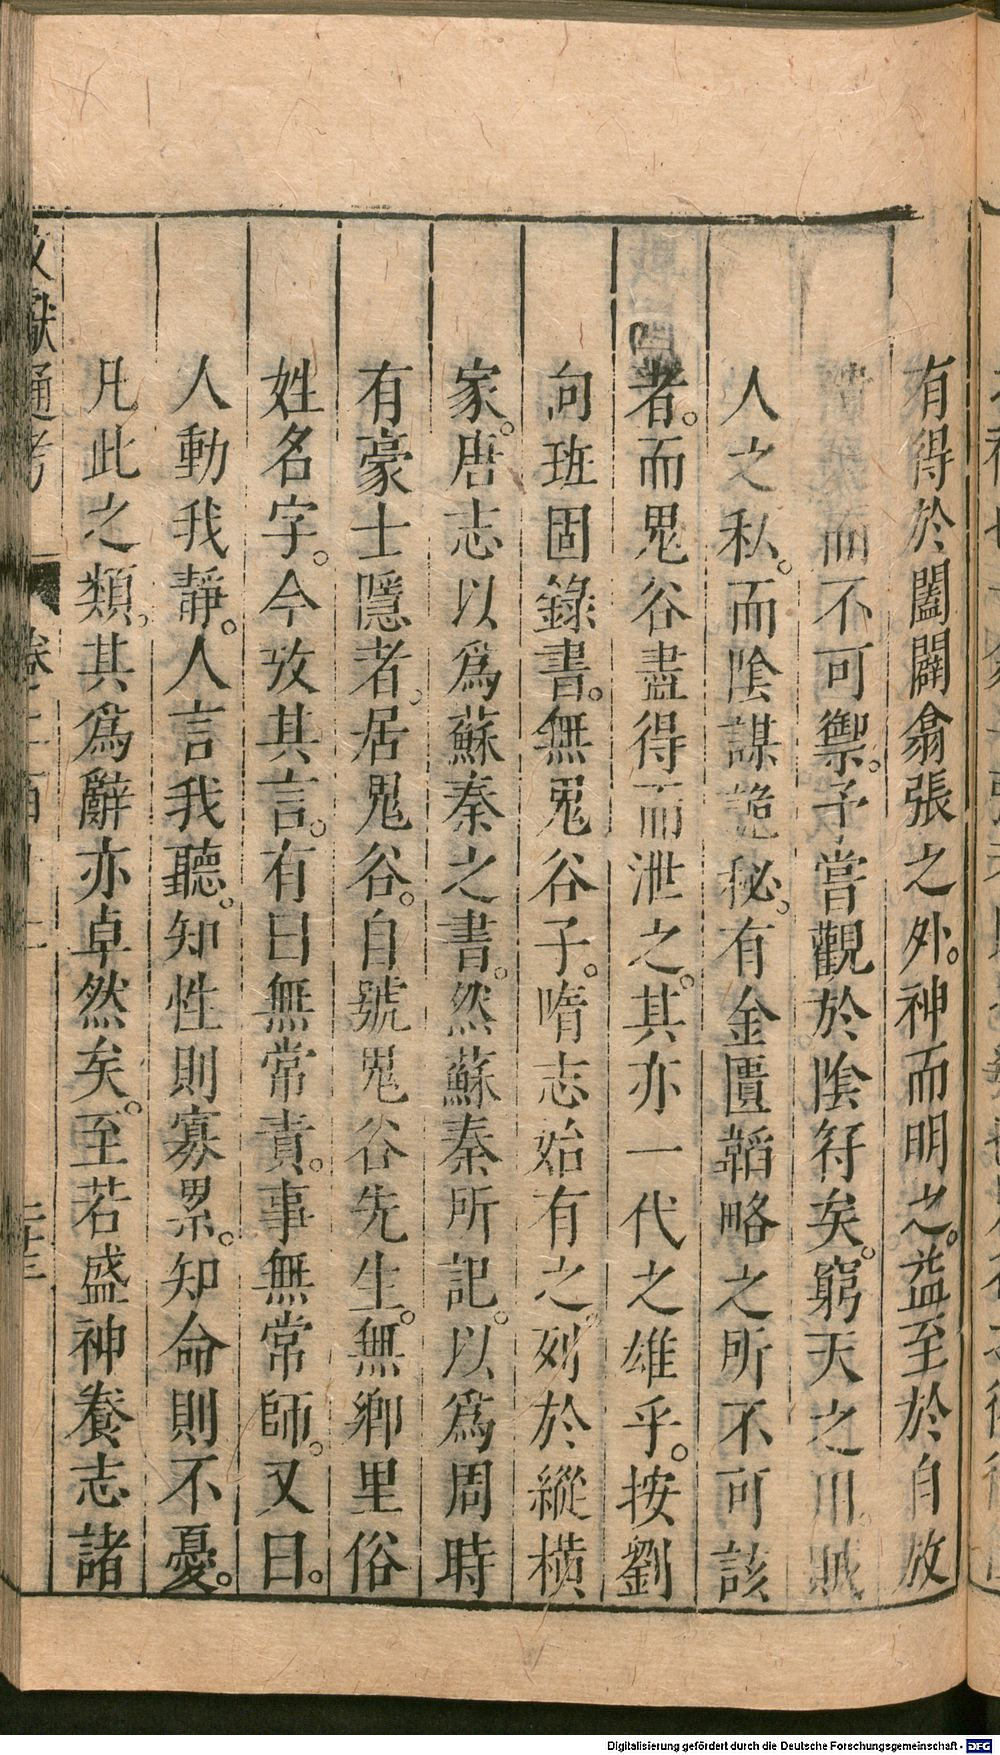 有得於闔闢翕張之外。神而明之。益至於自放
而不可禦。予嘗觀於陰符矣。窮天之用。賊
人之私。而陰謀詭秘。有金匱韜略之所不可該
者。而鬼谷盡得而泄之。其亦一代之雄乎。按劉
向班固錄書。無鬼谷子。隋志始有之。列於縱橫
家。唐志以爲蘇秦之書。然蘇秦所記。以爲周時
有豪士隱者。居鬼谷。自號鬼谷先生。無鄉里俗
姓名字。今攷其言。有曰無常責。事無常師。又曰。
人動我靜。人言我聽。知性則寡累。知命則不憂。
凡此之類。其爲辭亦卓然矣。至若盛神養志諸
文獻通考
Digitalisierung gefördert durch die Deutsche Forschungsgemeinschaft - DFG